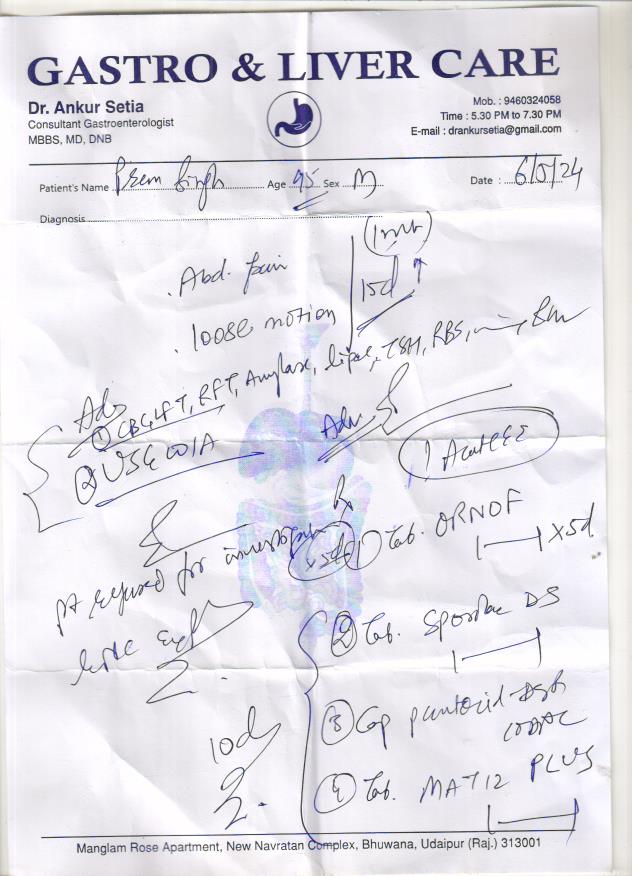 GASTRO & LIVER CARE
Dr. Ankur Setia
Consultant Gastroenterologist
MBBS, MD, DNB
Mob. : 9460324058
Time : 5.30 PM to 7.30 PM
E-mail : drankursetia@gmail.com
Patient's Name Prem Singh Age 95 Sex M Date : 6/5/24
Diagnosis
Abd. pain
loose motion
15d ↑
Adv
① CBC, LFT, RFT, Amylase, lipase, TSH, RBS,
② USG W/A
Adv
Rx
x5d ① Tab. ORNOF
x5d
pt refused for
② Tab. Sporlac DS
③ Cap
10d
④ Tab. MAT12 PLUS
Manglam Rose Apartment, New Navratan Complex, Bhuwana, Udaipur (Raj.) 313001